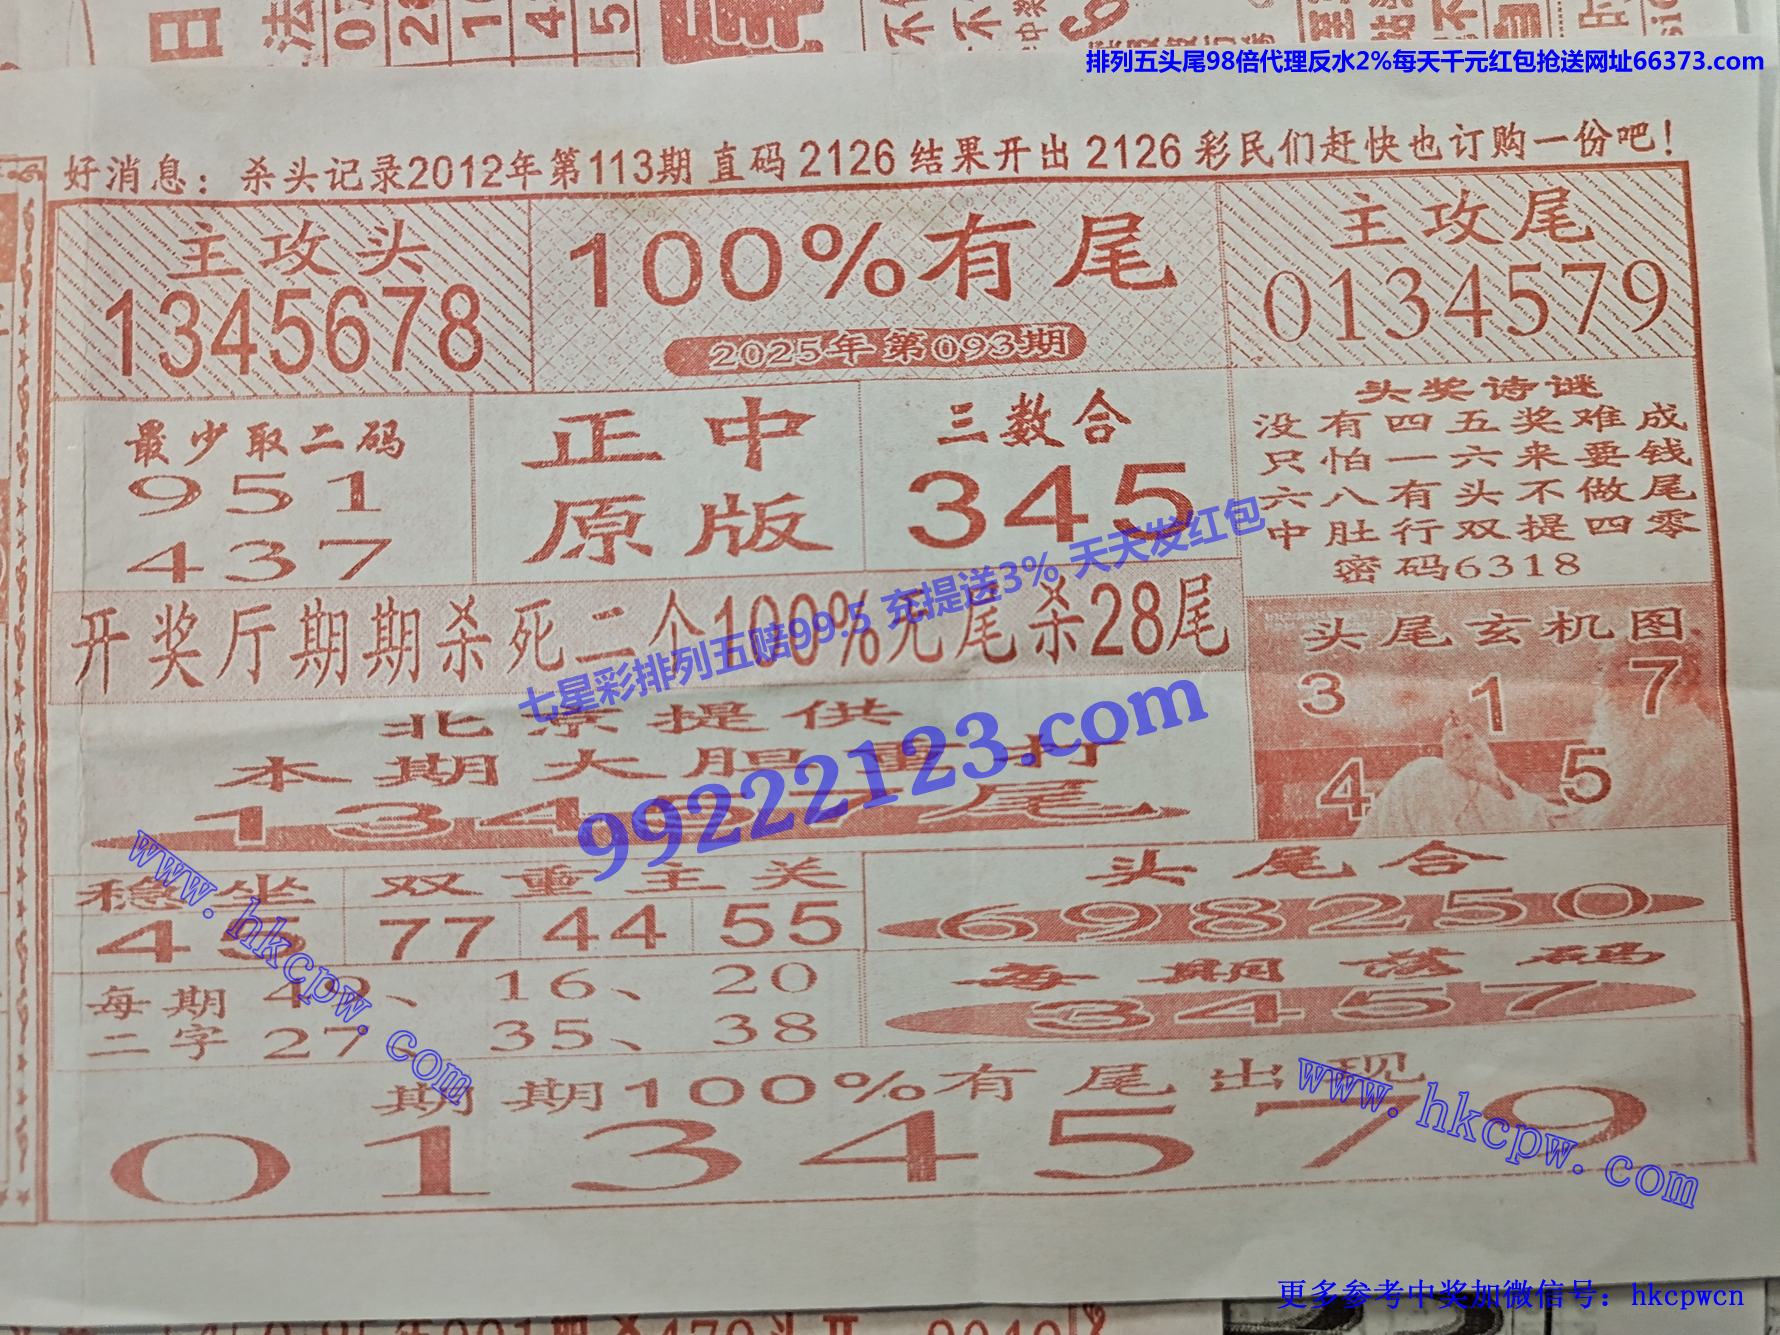 排列五头尾98倍代理反水2%每天千元红包抢送网址66373.com
好消息：杀头记录2012年第113期 直码 2126 结果开出 2126 彩民们赶快也订购一份吧！
主攻头
1345678
100%有尾
2025年第093期
主攻尾
0134579
最少取二码
951
437
正中
原版
三数合
345
头奖诗谜
没有四五奖难成
只怕一六来要钱
六八有头不做尾
中肚行双提四零
密码6318
开奖厅期期杀死二个100%无尾杀28尾
七星彩排列五赔99.5 充提送3% 天天发红包
头尾玄机图
3 1 7
4 5
北京提供
本期大胆重打
13457尾
99222123.com
www.hkcpw.com
稳坐
45
双重主关
77 44 55
头尾合
698250
每期
二字
49、 16、 20
27、 35、 38
每期落码
3457
期期100%有尾出现
0134579
www.hkcpw.com
更多参考中奖加微信号：hkcpwcn